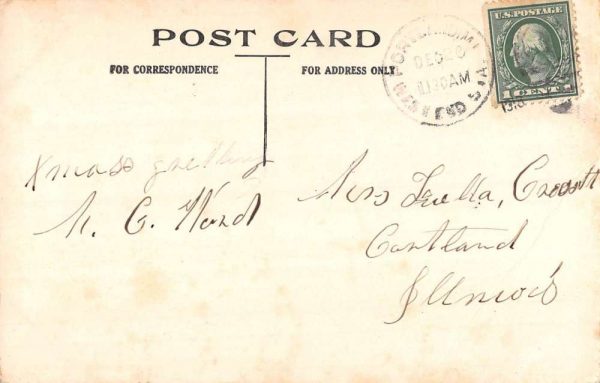 POST CARD
FOR CORRESPONDENCE
FOR ADDRESS ONLY
DEC 20
11 30 AM
WEST END STA.
U.S. POSTAGE
1 CENT 1
Xmass greeting
N. C. Ward
Miss Luella,
Cortland
Illinois